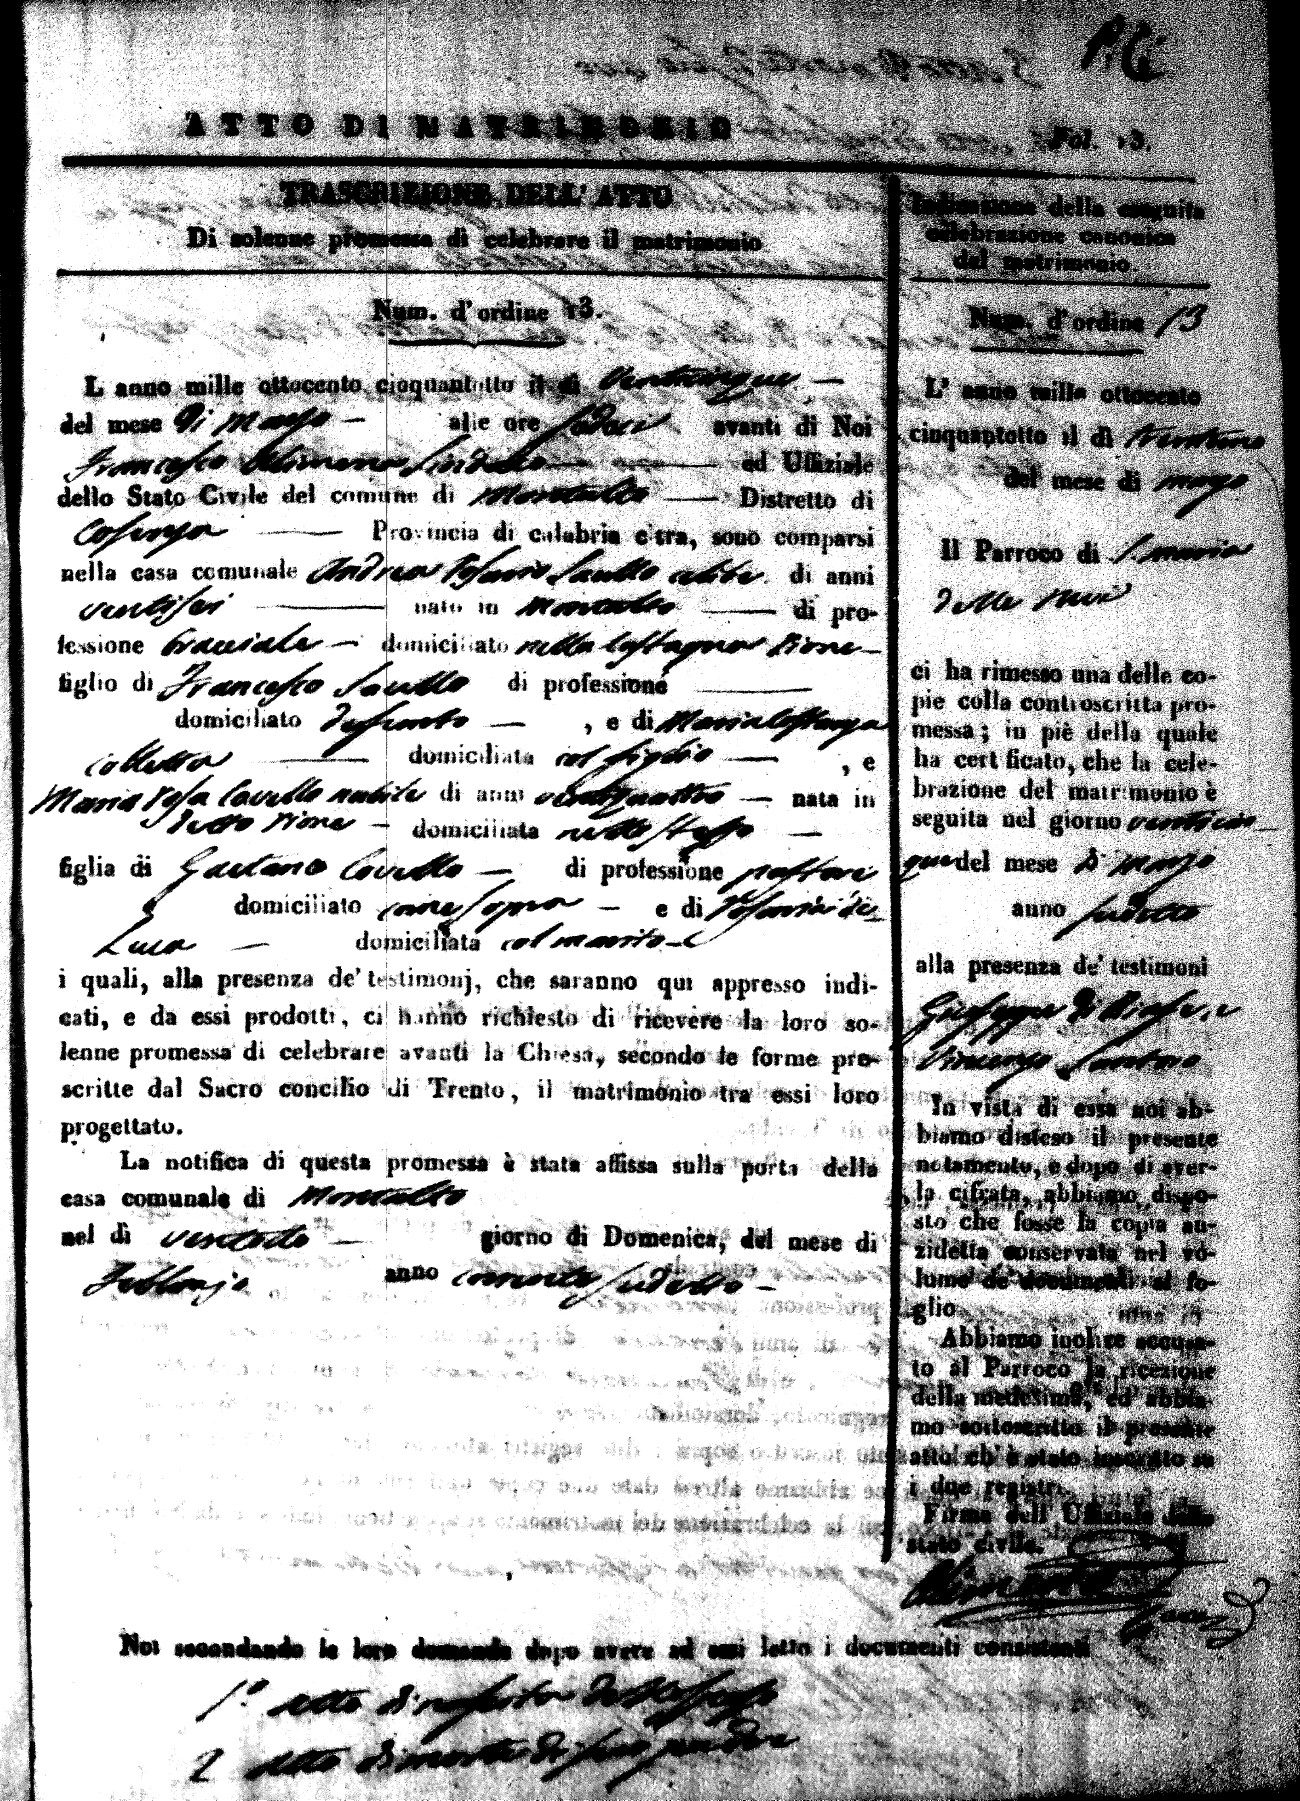 ATTO DI MATRIMONIO
Fol. 13.
TRASCRIZIONE DELL' ATTO
Di solenne promessa di celebrare il matrimonio
Num. d'ordine 13.
L anno mille ottocento cinquantotto il dì venticinque
del mese di Marzo alle ore sedeci avanti di Noi
Francesco Alimena Sindaco ed Uffiziale
dello Stato Civile del comune di Montalto Distretto di
Cosenza Provincia di calabria citra, sono comparsi
nella casa comunale Andrea Rosario Saullo celibe di anni
ventisei nato in Montalto di pro-
fessione bracciale domiciliato nella Castagna Rione
figlio di Francesco Saullo di professione
domiciliato defunto , e di Maria
domiciliata col figlio , e
Maria Rosa Covello nubile di anni ventiquattro nata in
detto Rione domiciliata nello stesso
figlia di Gaetano Covello di professione pastore
domiciliato come sopra e di Rosaria de
Luca domiciliata col marito
i quali, alla presenza de' testimonj, che saranno qui appresso indi-
cati, e da essi prodotti, ci hanno richiesto di ricevere la loro so-
lenne promessa di celebrare avanti la Chiesa, secondo le forme pre-
scritte dal Sacro concilio di Trento, il matrimonio tra essi loro
progettato.
La notifica di questa promessa è stata affissa sulla porta della
casa comunale di Montalto
nel dì ventotto giorno di Domenica, del mese di
Febbrajo anno corrente sudetto
Indicazione della seguita
celebrazione canonica
del matrimonio.
Num. d'ordine 13
L' anno mille ottocento
cinquantotto il dì trentuno
del mese di marzo
Il Parroco di S. Maria
della
ci ha rimesso una delle co-
pie colla controscritta pro-
messa; in piè della quale
ha certificato, che la cele-
brazione del matrimonio è
seguita nel giorno venticin
que del mese di Marzo
anno sudetto
alla presenza de' testimoni
Giuseppe di
Vincenzo Santoro
In vista di essa noi ab-
biamo disteso il presente
notamento, e dopo di aver-
la cifrata, abbiamo dispo-
sto che fosse la copia an-
zidetta conservata nel vo-
lume de' documenti al fo-
glio
Abbiamo inoltre accusa-
to al Parroco la ricezione
della medesima, ed abbia-
mo sottoscritto il presente
atto ch' è stato inscritto su
i due registri.
Firma dell' Uffiziale dello
stato civile.
Alimena
Noi secondando le loro domande dopo avere ad essi letto i documenti consistenti
1.° Atto di nascita dello sposo
2 Atto di morte di suo padre